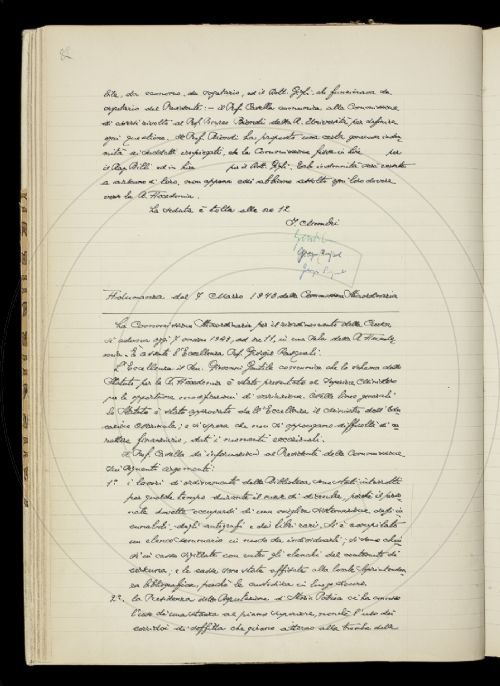 82
bile, da economo, da segretario, ed il dott. Gigli, che funzionava da
segretario del Presidente: – il Prof. Casella comunica alla Commissione
di essersi rivolto al Prof. Biondi della R. Università, per definire
ogni questione. Il Prof. Biondi ha proposto una certa somma inden-
nità ai suddetti impiegati, che la Commissione fissa in Lire per
il Rag. Billi ed in Lire per il dott. Gigli. Tale indennità sarà versata
a ciascuno di loro, non appena essi abbiano assolto ogni loro dovere
verso la R. Accademia.
La seduta è tolta alle ore 12
I Membri
Gentile
Giorgio Pasquali
Adunanza del 7 Marzo 1943 della Commissione Straordinaria
La Commissione Straordinaria per il riordinamento della Crusca
si aduna oggi 7 marzo 1943, ad ore 11, in una sala della R. Accade-
mia. È assente l'Eccellenza Prof. Giorgio Pasquali.
L'Eccellenza il Sen. Giovanni Gentile comunica che lo schema dello
Statuto per la R. Accademia è stato presentato al Superiore Ministero
per le opportune modificazioni di variazione. Nelle linee generali
lo Statuto è stato approvato da S. Eccellenza il Ministro dell'Edu-
cazione Nazionale; e si spera che non si oppongano difficoltà di ca-
rattere finanziario, dati i momenti eccezionali.
Il Prof. Casella dà informazioni al Presidente della Commissione
sui seguenti argomenti:
1° i lavori di ordinamento della Biblioteca sono stati interrotti
per qualche tempo durante il mese di dicembre, perché il perso-
nale dovette occuparsi di una cernita degli in-
cunaboli, degli autografi e dei libri rari. Si è compilato
un elenco sommario in modo da individuarli; si sono chiu-
si in casse sigillate con unito gli elenchi del contenuto di
ciascuna; e le casse sono state affidate alla locale Soprintenden-
za bibliografica, perché le custodisca in luogo sicuro.
2° la Presidenza della Deputazione di Storia Patria ci ha concesso
l'uso di una stanza al piano superiore, nonché l'uso dei
corridoi di soffitta che girano attorno alla tromba delle